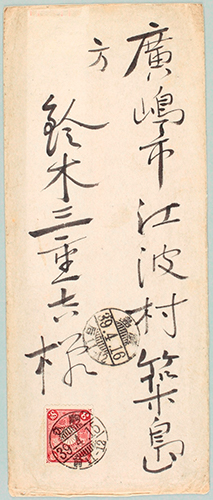 廣嶋市江波村築島
方
鈴木三重吉様
39.4.16
39.4.15